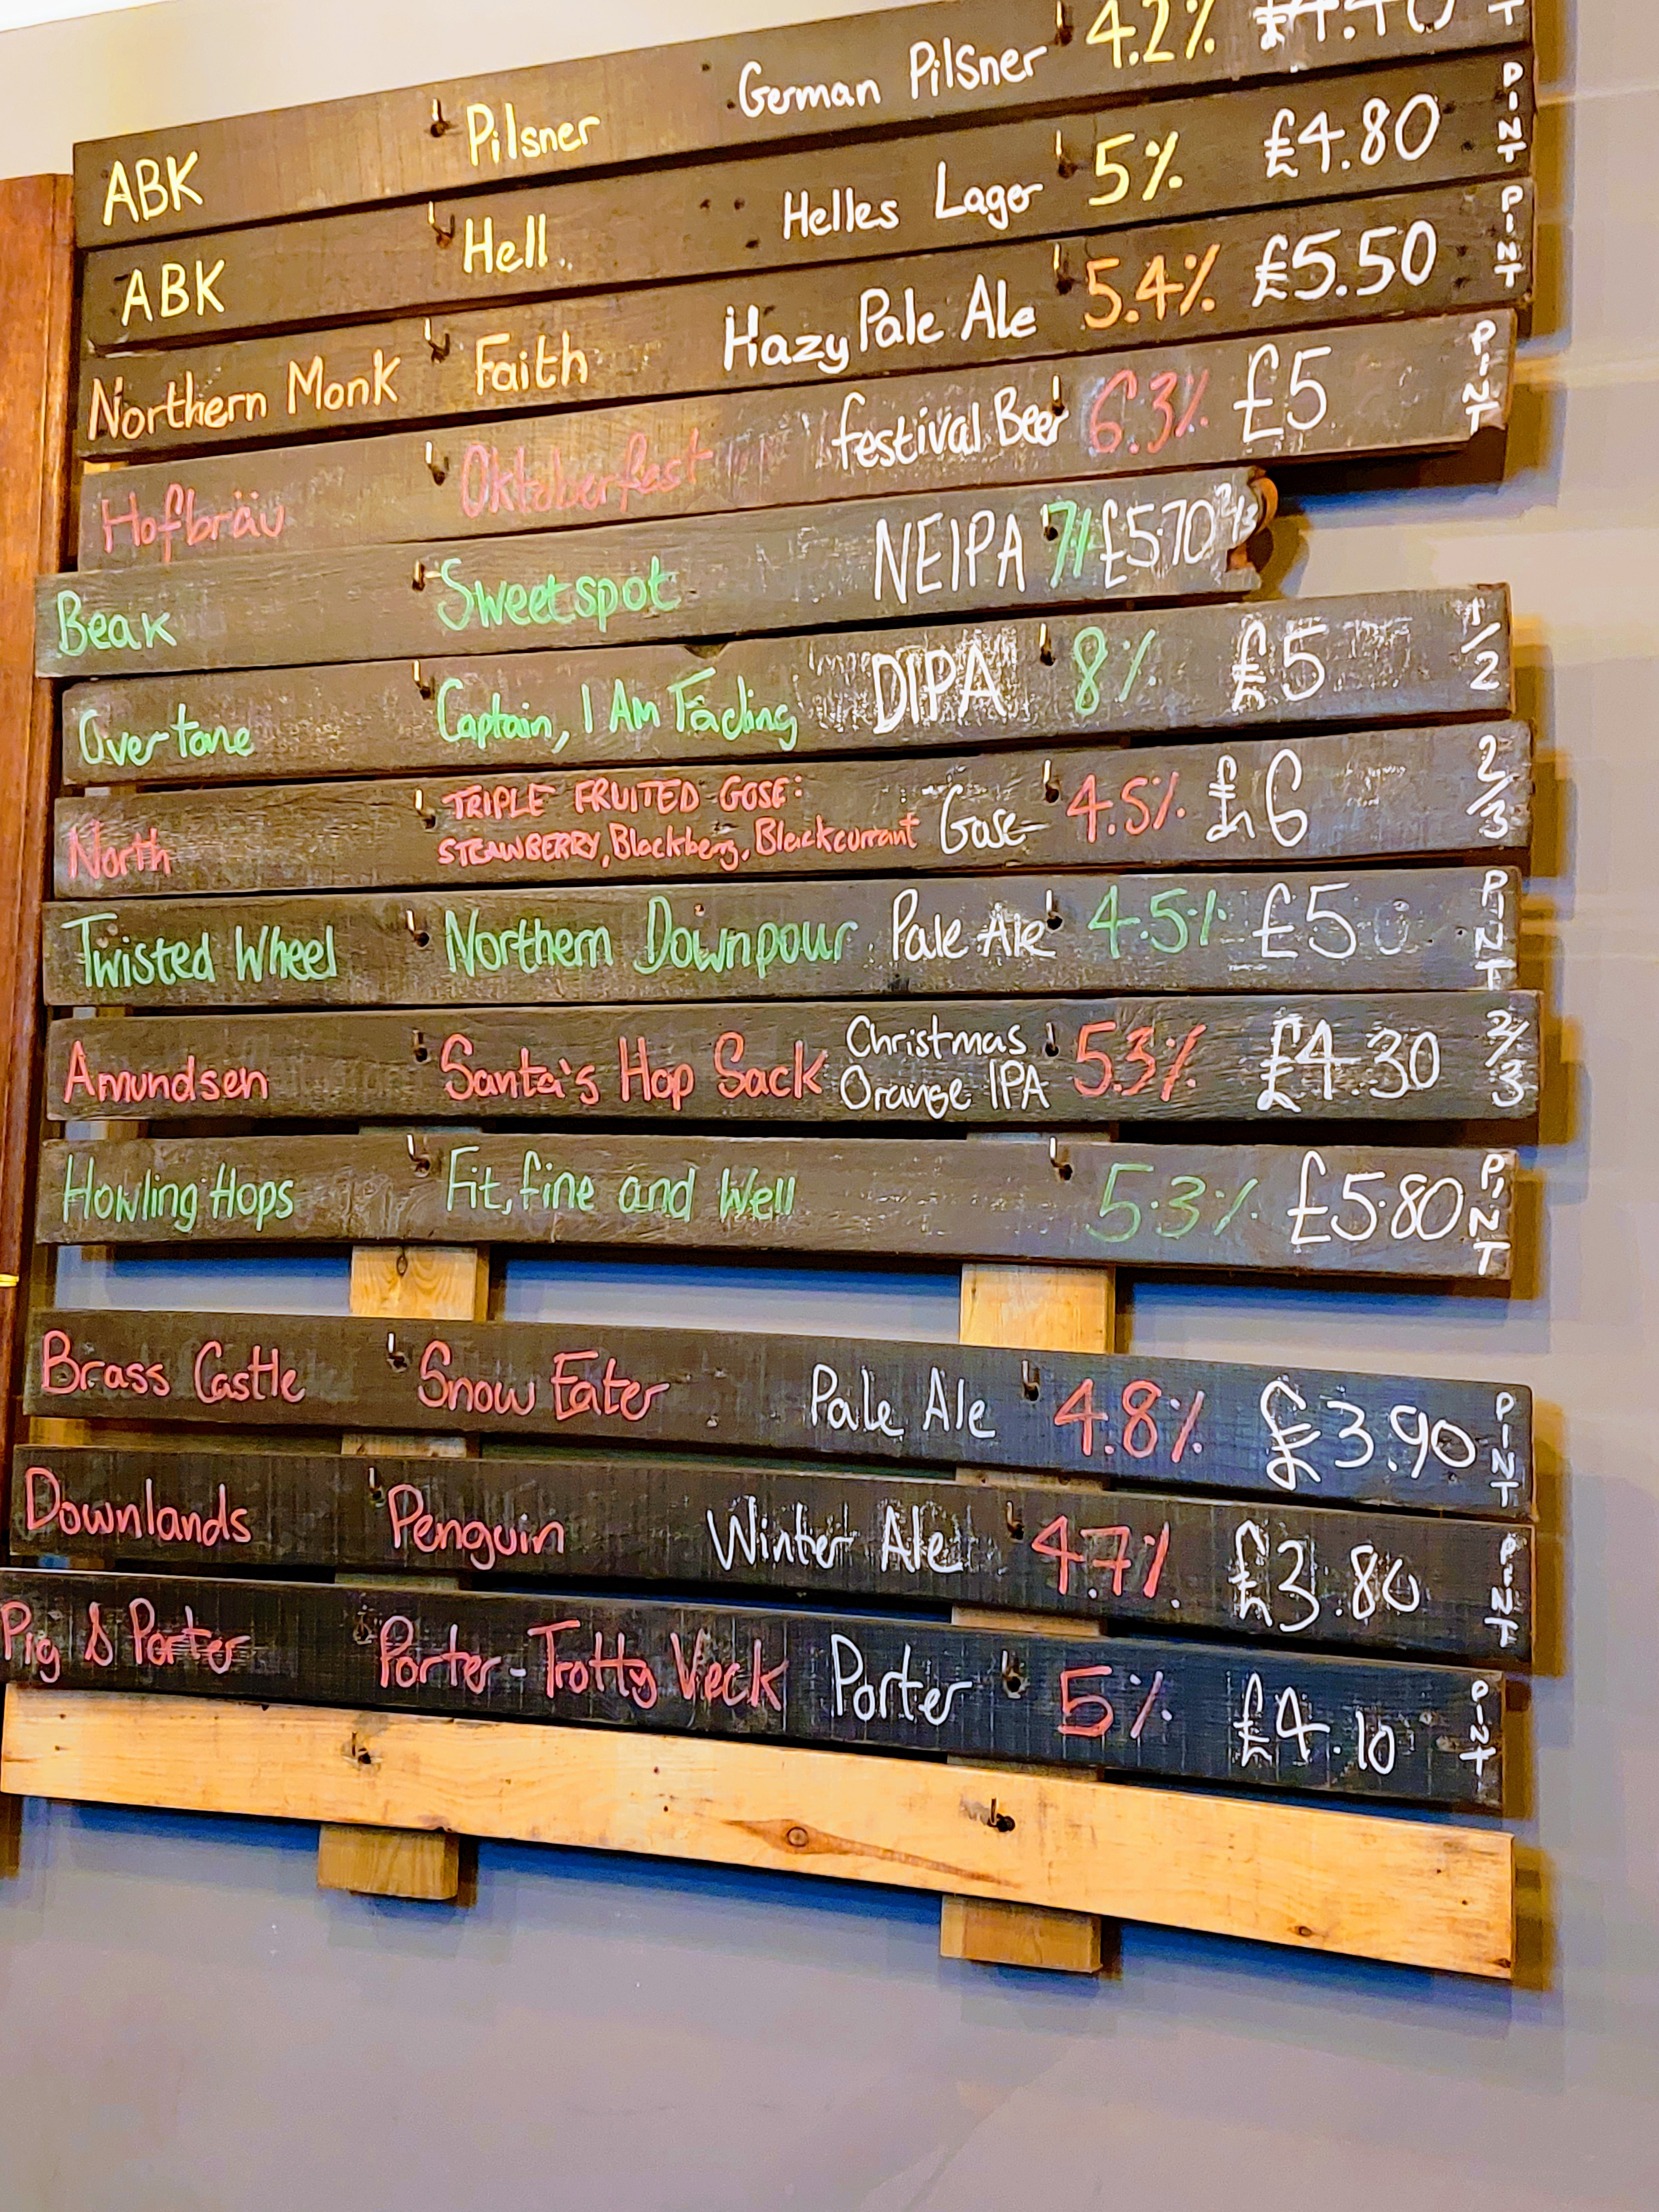 ABK Pilsner German Pilsner 4.2% £4.40
ABK Hell Helles Lager 5% £4.80 PINT
Northern Monk Faith Hazy Pale Ale 5.4% £5.50 PINT
Hofbräu Oktoberfest festival Beer 6.3% £5 PINT
Beak Sweetspot NEIPA 7% £5.70 2/3
Overtone Captain, I Am Fading DIPA 8% £5 1/2
North TRIPLE FRUITED GOSE:
STRAWBERRY, Blackberry, Blackcurrant Gose 4.5% £6 2/3
Twisted Wheel Northern Downpour Pale Ale 4.5% £5 PINT
Amundsen Santa's Hop Sack Christmas
Orange IPA 5.3% £4.30 2/3
Howling Hops Fit, fine and Well 5.3% £5.80 PINT
Brass Castle Snow Eater Pale Ale 4.8% £3.90 PINT
Downlands Penguin Winter Ale 4.7% £3.80 PINT
Pig & Porter Porter - Trotty Veck Porter 5% £4.10 PINT